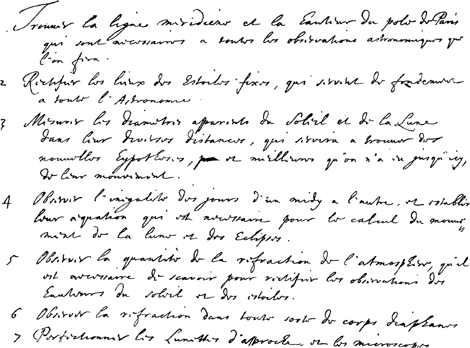 Trouver la ligne meridiene et la hauteur du pole de Paris
qui sont necessaires a toutes les observations astronomiques que
l'on fera.
2 Rectifier les lieux des Estoiles fixes, qui servent de fondement
a toute l'Astronomie.
3 Mesurer les diametres apparents du Soleil et de la Lune
dans leur diverses distances, qui servira a trouver des
nouvelles hypotheses, et meilleures qu'on n'a eu jusqu'icy,
de leur mouvement.
4 Observer l'inegalité des jours d'un midy a l'autre, et establir
leur aequation qui est necessaire pour le calcul du mouve
ment de la lune et des Eclipses.
5 Observer la quantité de la refraction de l'atmosphere, qu'il
est necessaire de scavoir pour rectifier les observations des
hauteurs du soleil et des estoiles.
6 Observer la refraction dans toute sorte de corps diaphanes
7 Perfectionner les Lunettes d'approche et les microscopes